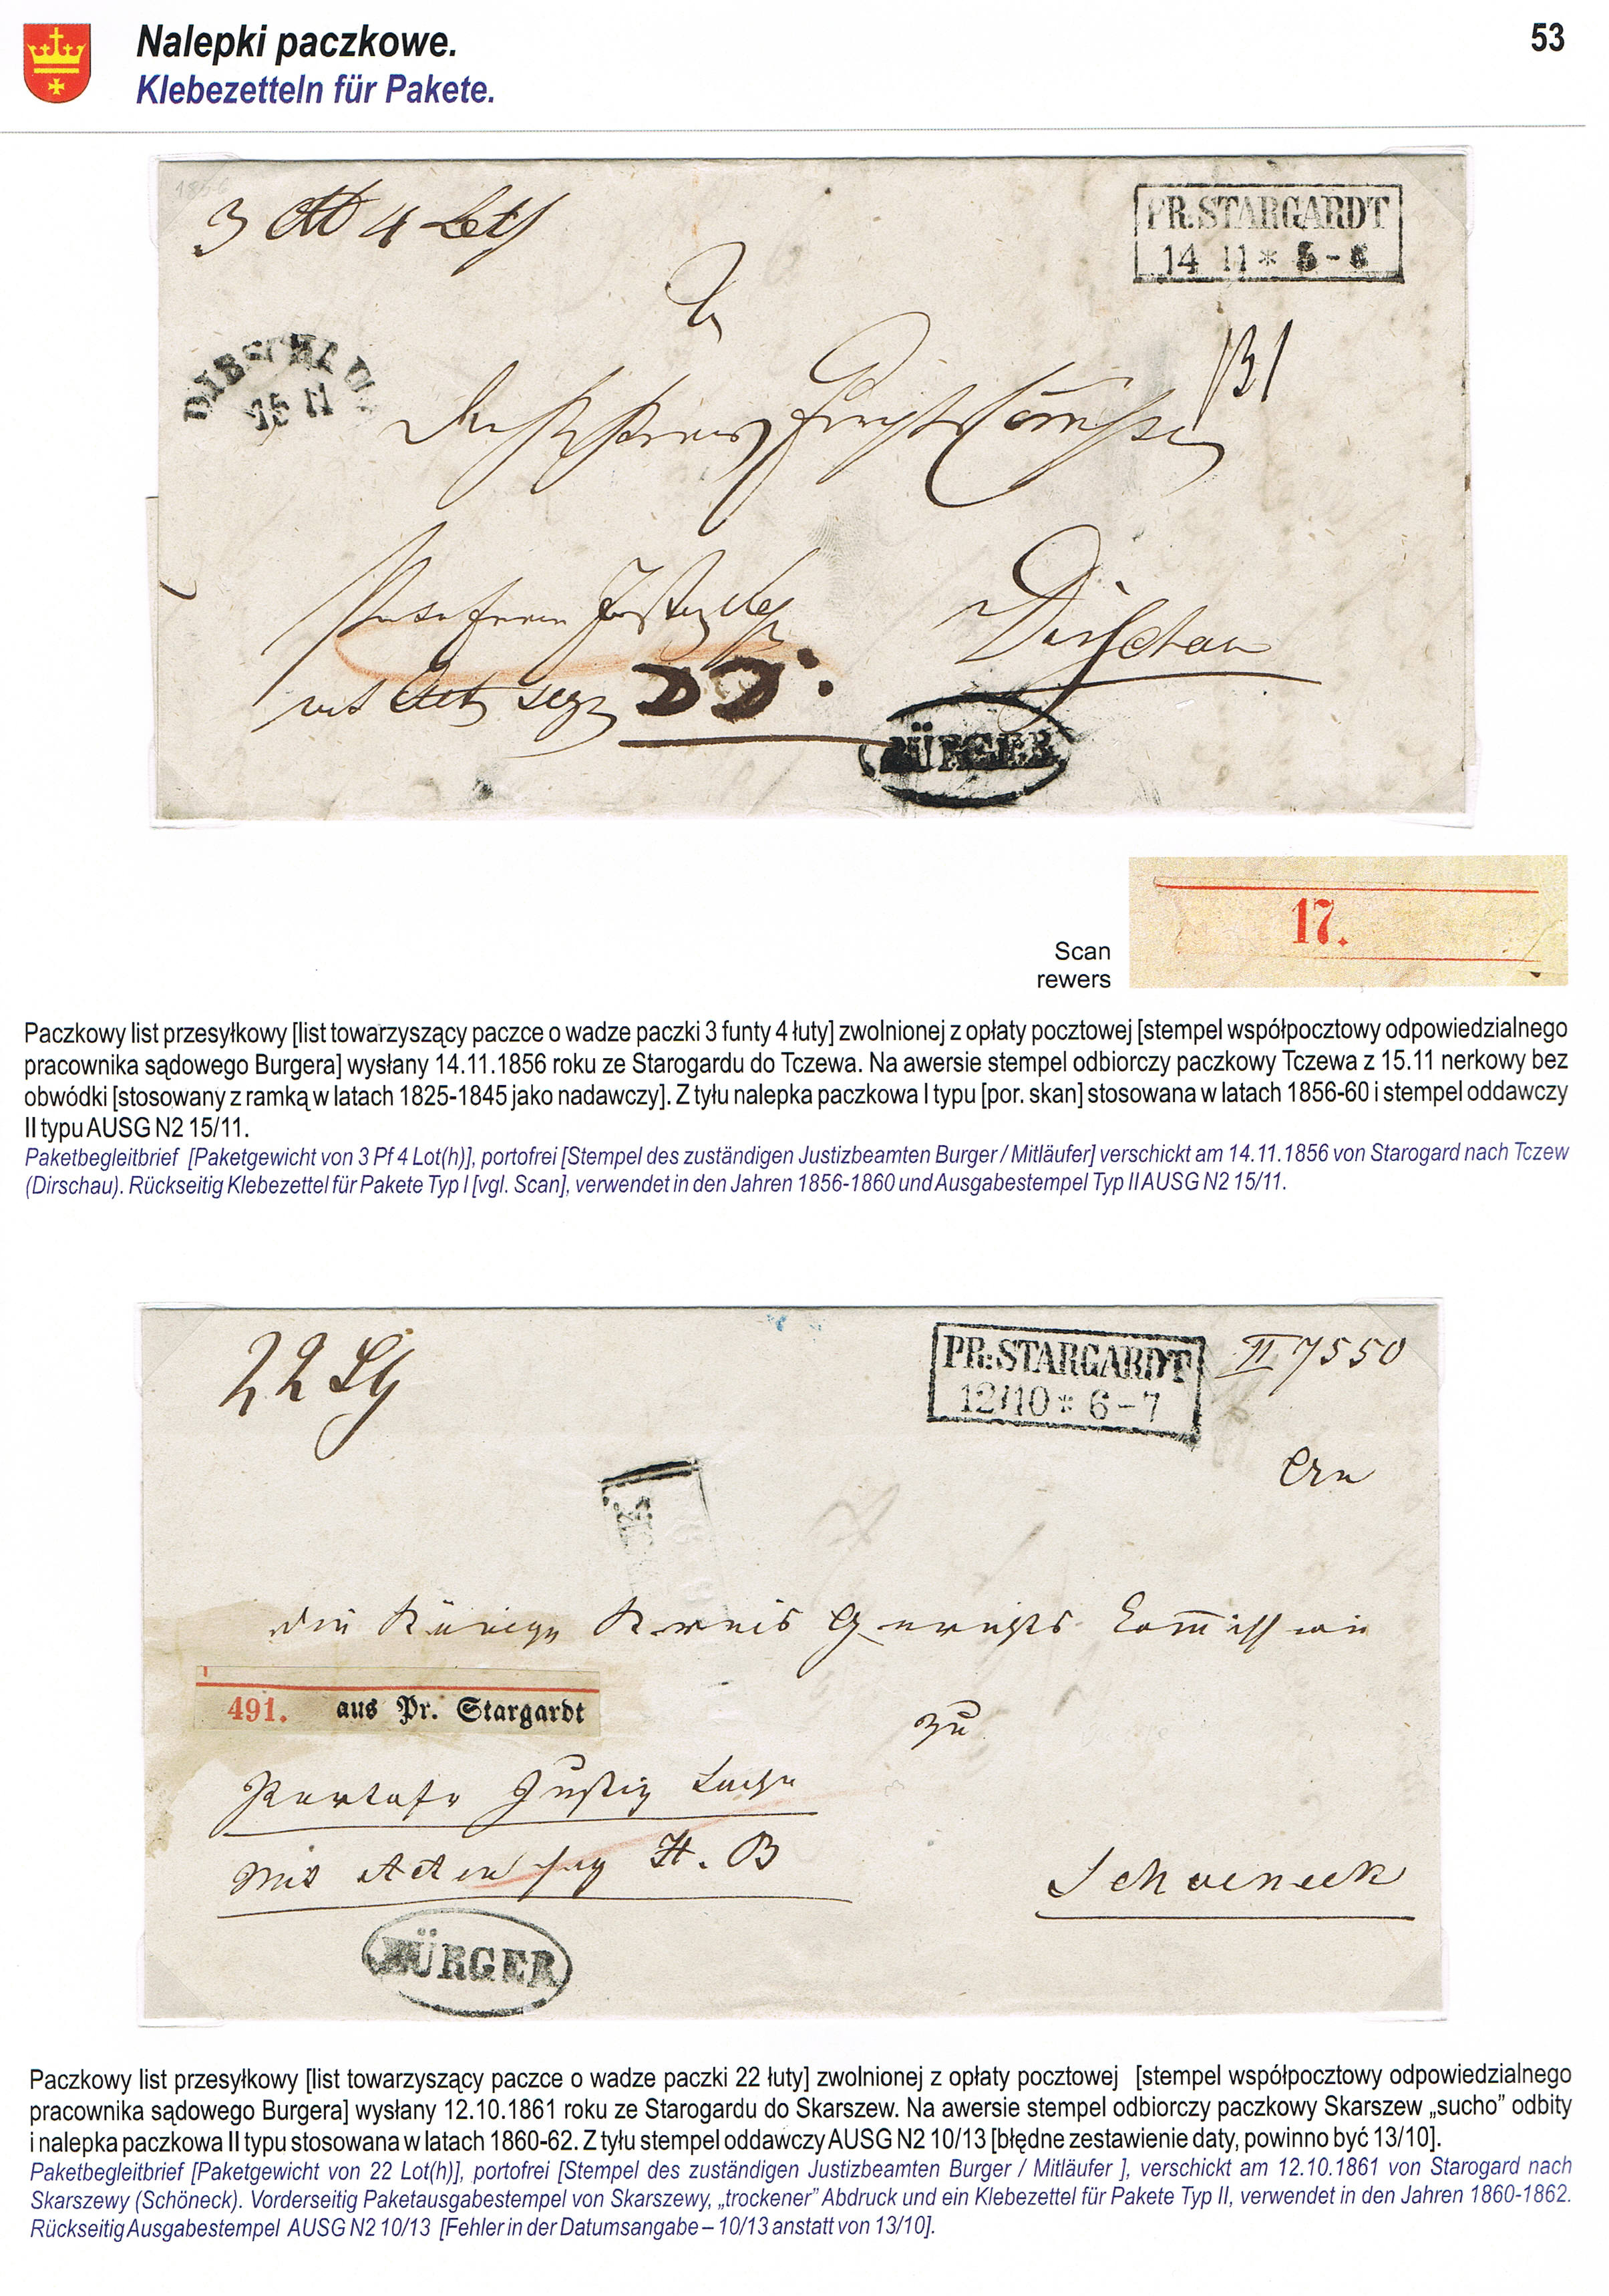 Nalepki paczkowe.
53
Klebezetteln für Pakete.
1856
3 4 Loth
PR. STARGARDT
14 11 * 5-6
DIRSCHAU
15 11
Dirschau
BÜRGER
17.
Scan
rewers
Paczkowy list przesyłkowy [list towarzyszący paczce o wadze paczki 3 funty 4 łuty] zwolnionej z opłaty pocztowej [stempel współpocztowy odpowiedzialnego
pracownika sądowego Burgera] wysłany 14.11.1856 roku ze Starogardu do Tczewa. Na awersie stempel odbiorczy paczkowy Tczewa z 15.11 nerkowy bez
obwódki [stosowany z ramką w latach 1825-1845 jako nadawczy]. Z tyłu nalepka paczkowa I typu [por. skan] stosowana w latach 1856-60 i stempel oddawczy
II typu AUSG N2 15/11.
Paketbegleitbrief [Paketgewicht von 3 Pf 4 Lot(h)], portofrei [Stempel des zuständigen Justizbeamten Burger / Mitläufer] verschickt am 14.11.1856 von Starogard nach Tczew
(Dirschau). Rückseitig Klebezettel für Pakete Typ I [vgl. Scan], verwendet in den Jahren 1856-1860 und Ausgabestempel Typ II AUSG N2 15/11.
22 Lth
PR: STARGARDT
12/10 * 6-7
II 7550
An
die Königl Kreis Gerichts Commission
491. aus Pr. Stargardt
zu
Portofr Justiz Sache
mit Acten sig H. B
Schoeneck
BÜRGER
Paczkowy list przesyłkowy [list towarzyszący paczce o wadze paczki 22 łuty] zwolnionej z opłaty pocztowej [stempel współpocztowy odpowiedzialnego
pracownika sądowego Burgera] wysłany 12.10.1861 roku ze Starogardu do Skarszew. Na awersie stempel odbiorczy paczkowy Skarszew „sucho” odbity
i nalepka paczkowa II typu stosowana w latach 1860-62. Z tyłu stempel oddawczy AUSG N2 10/13 [błędne zestawienie daty, powinno być 13/10].
Paketbegleitbrief [Paketgewicht von 22 Lot(h)], portofrei [Stempel des zuständigen Justizbeamten Burger / Mitläufer ], verschickt am 12.10.1861 von Starogard nach
Skarszewy (Schöneck). Vorderseitig Paketausgabestempel von Skarszewy, „trockener” Abdruck und ein Klebezettel für Pakete Typ II, verwendet in den Jahren 1860-1862.
Rückseitig Ausgabestempel AUSG N2 10/13 [Fehler in der Datumsangabe – 10/13 anstatt von 13/10].